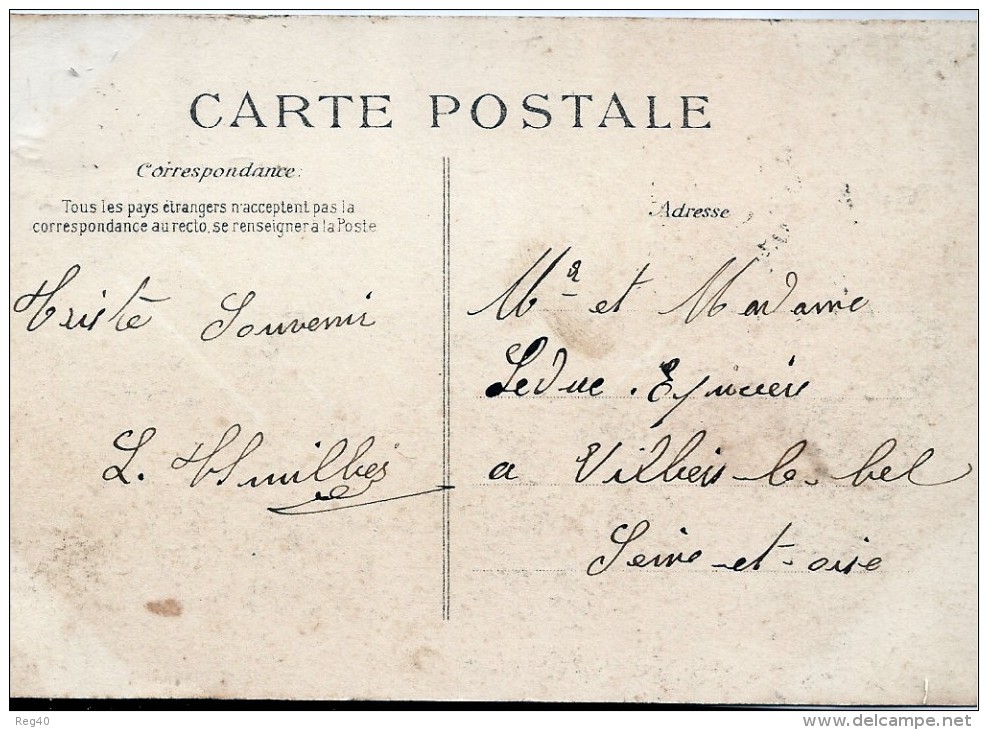 CARTE POSTALE
Correspondance:
Tous les pays étrangers n'acceptent pas la
correspondance au recto, se renseigner à la Poste
Triste Souvenir
L.
Adresse
Mr et Madame
Leduc. Epiciers
a Villiers-le-bel
Seine-et-oise
Reg40
www.delcampe.net